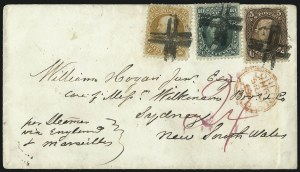 William Hogan Junr. Esqr
care of Messrs Wilkinson Bros & Co
Sydney
New South Wales
per Steamer
via England
& Marseilles
24